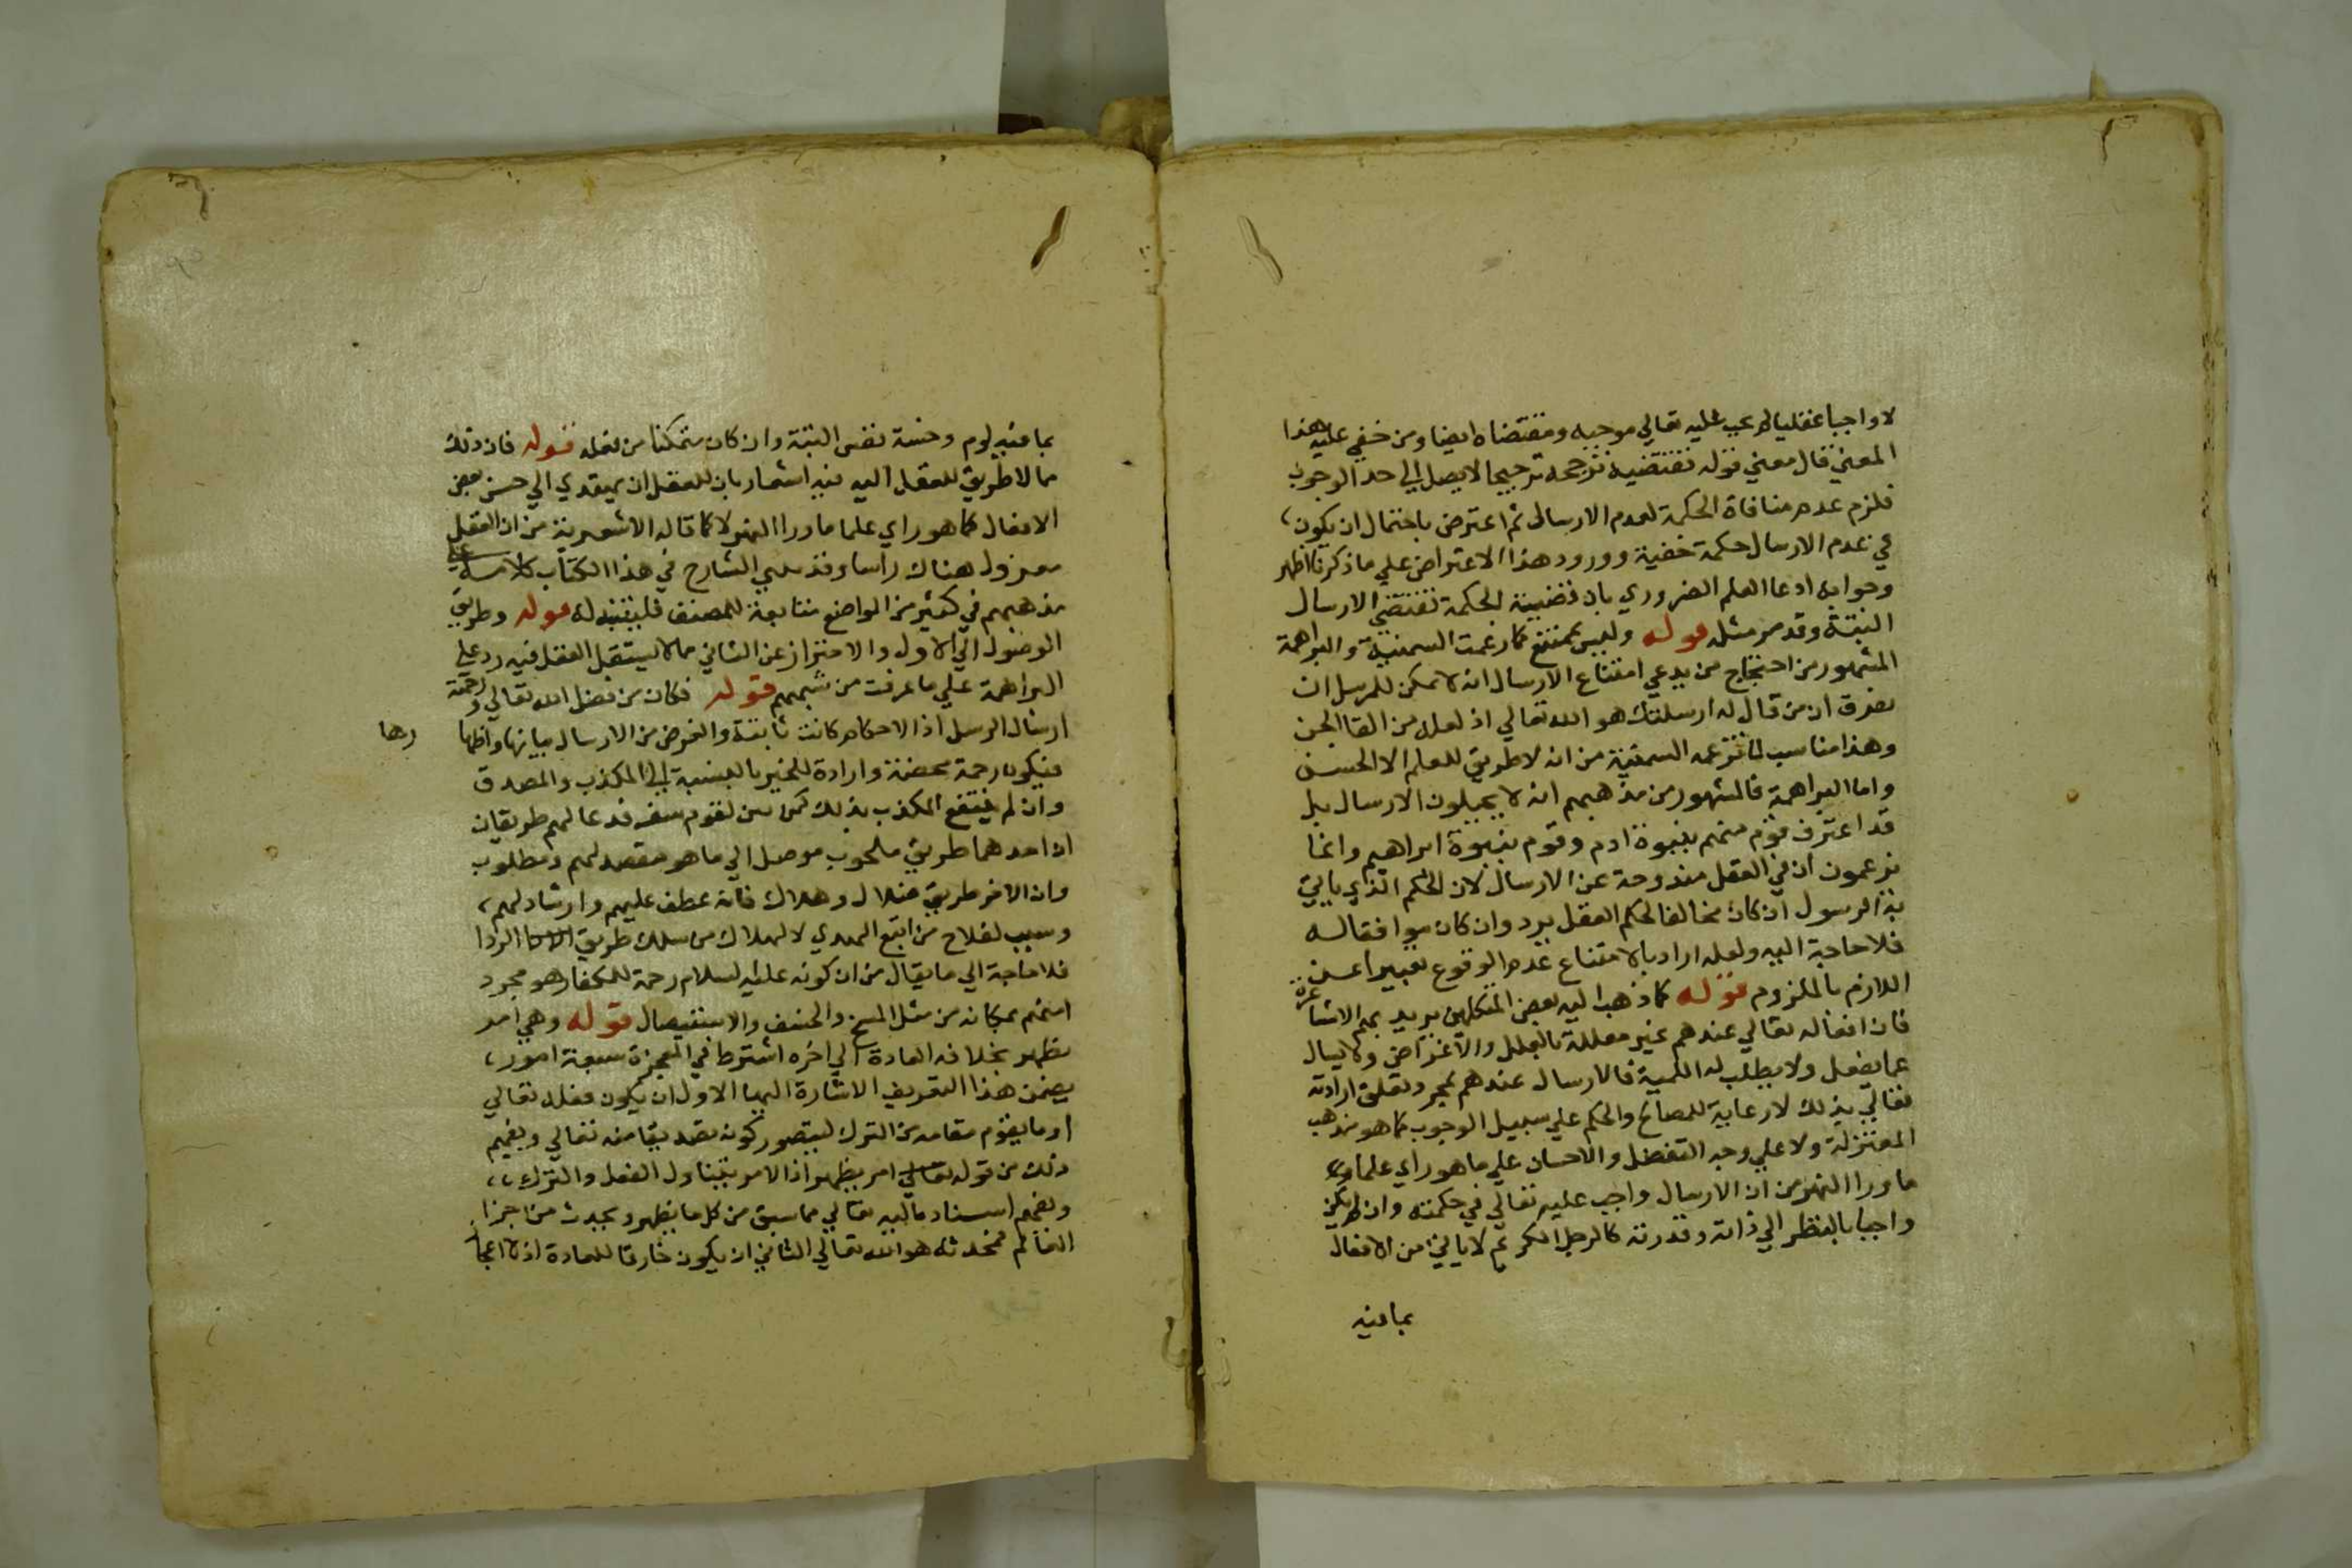 لا واجبا عقليا لم يجب عليه تعالي موجبه ومقتضاه ايضا ومن خفي عليه هذا
المعني قال معني قوله تقتضيه ترجحه ترجيحا لا يصل الي حد الوجوب
فلزم عدم منافاة الحكمة لعدم الارسال ثم اعترض باحتمال ان يكون
في عدم الارسال حكمة خفية وورود هذا الاعتراض علي ما ذكرنا اظهر
وجوابه ادعا العلم الضروري بان قضيية الحكمة تقتضي الارسال
البتة وقد مر مثله قوله وليس بممتنع كما زعمت السمنية والبراهمة
المشهور من احتجاج من يدعي امتناع الارسال انه لا يمكن للمرسل ان
يعرف ان من قال له ارسلتك هو الله تعالي اذ لعله من القا الجن
وهذا مناسب لما تزعمه السمنية من انه لا طريق للعلم الا الحس
واما البراهمة فالمشهور من مذهبهم انه لا يحيلون الارسال بل
قد اعترف قوم منهم بنبوة ادم وقوم بنبوة ابراهيم وانما
يزعمون ان في العقل مندوحة عن الارسال لان الحكم الذي ياتي
به الرسول ان كان مخالفا لحكم العقل يرد وان كان موافقا له
فلا حاجة اليه ولعله اراد بالامتناع عدم الوقوع تعبيرا عن
اللازم بالملزوم قوله كما ذهب اليه بعض المتكلمين يريد بهم الاشاعرة
فان افعاله تعالي عندهم غير معللة بالعلل والاغراض ولا يسال
عما يفعل ولا يطلب له اللمية فالارسال عندهم بمجرد تعلق ارادته
تعالي بذلك لا رعاية للمصالح والحكم علي سبيل الوجوب كما هو مذهب
المعتزلة ولا علي وجه التفضل والاحسان علي ما هو راي علما
ما ورا النهر من ان الارسال واجب عليه تعالي في حكمته وان لم يكن
واجبا بالنظر الي ذاته وقدرته كالرجل الكريم لا ياتي من الافعال
بما فيه
بما فيه لوم وخسة نفس البتة وان كان متمكنا من فعله قوله فان ذلك
مما لا طريق للعقل اليه فيه اشعار بان للعقل ان يهتدي الي حسن بعض
الافعال كما هو راي علما ما ورا النهر لا كما قاله الاشعرية من ان العقل
معزول هناك راسا وقد بني الشارح في هذا الكتاب كلامه علي
مذهبهم في كثير من المواضع متابعة للمصنف فليتنبه له قوله وطريق
الوصول الي الاول والاحتراز عن الثاني مما لا يستقل العقل فيه رد علي
البراهمة علي ما عرفت من شبههم قوله فكان من فضل الله تعالي ورحمته
ارسال الرسل اذ الاحكام كانت ثابتة والغرض من الارسال بيانها واظها
رها
فيكون رحمة محضة وارادة للخير بالنسبة الي المكذب والمصدق
وان لم ينتفع المكذب بذلك كمن بين لقوم سفر قد عا لهم طريقان
ان احدهما طريق ملحوب موصل الي ما هو مقصد لهم ومطلوب
وان الاخر طريق ضلال وهلاك فانه عطف عليهم وارشاد لهم
وسبب لفلاح من اتبع الهدي لا لهلاك من سلك طريق الردا
فلا حاجة الي ما يقال من ان كونه عليه السلام رحمة للكفار هو مجرد
امنهم بمكانه من مثل المسخ والخسف والاستيصال قوله وهي امر
يظهر بخلاف العادة الي اخره اشترط في المعجزة سبعة امور
يضمن هذا التعريف الاشارة اليها الاول ان يكون فعله تعالي
او ما يقوم مقامه من الترك ليتصور كونه تصديقا منه تعالي ويفهم
ذلك من قوله تعالي امر يظهر اذ الامر يتناول الفعل والترك
ويفهم اسناده اليه تعالي مما سبق من كل ما يظهر ويحدث من اجزا
العالم فمحدثه هو الله تعالي الثاني ان يكون خارقا للعادة اذ لا اعجا